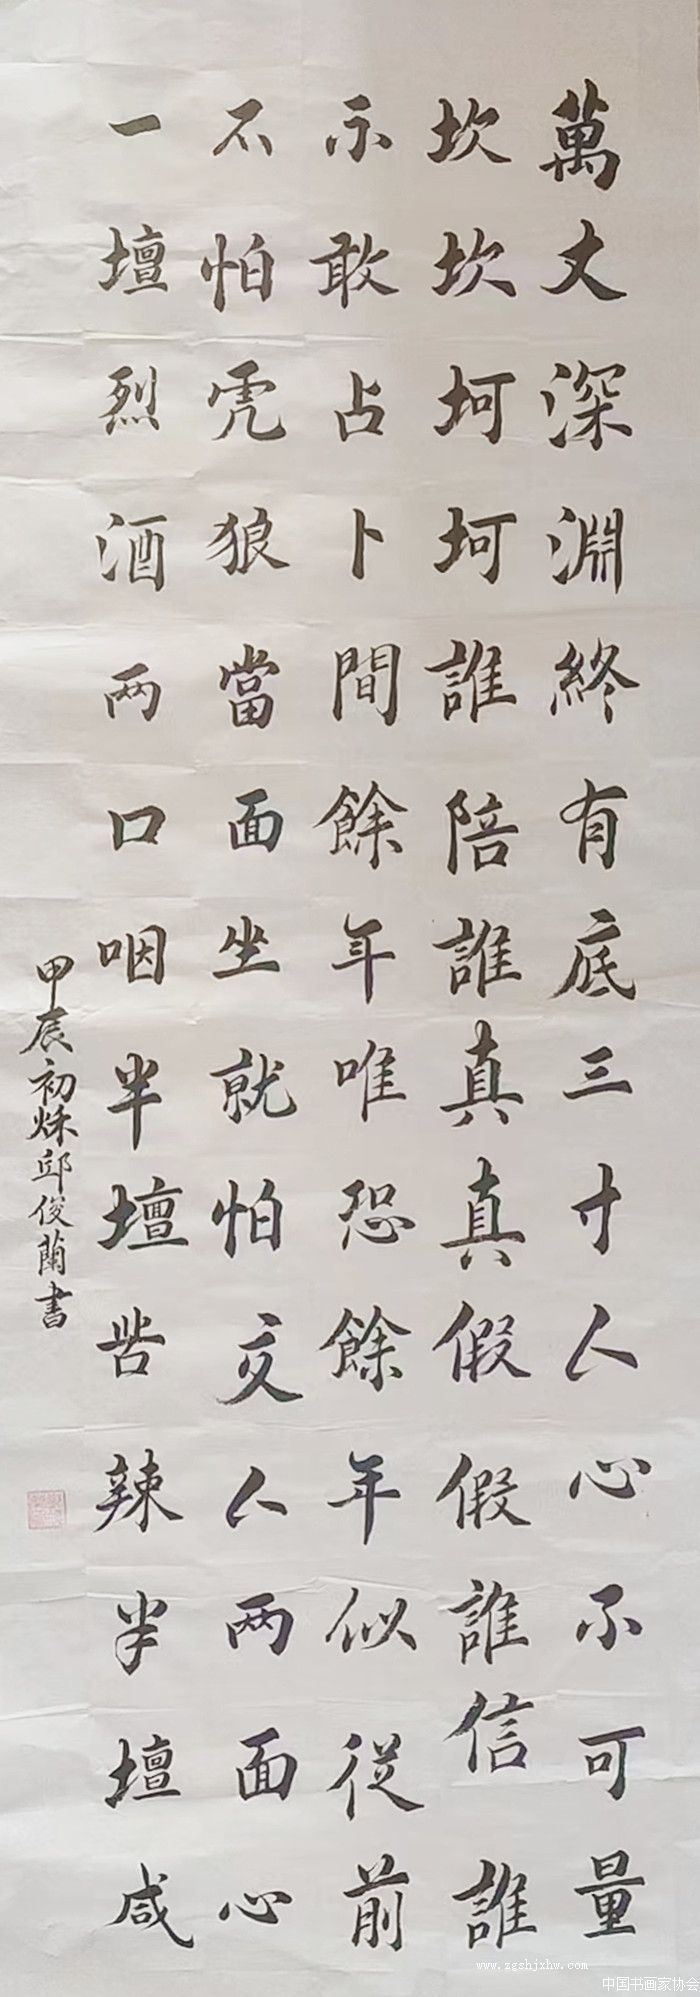 萬丈深淵終有底三寸人心不可量
坎坎坷坷誰陪誰真真假假誰信誰
不敢占卜問餘年唯恐餘年似從前
不怕虎狼當面坐就怕交人两面心
一壇烈酒两口咽半壇苦辣半壇咸
甲辰初秌邱俊蘭書
www.zgshjxhw.com
中国书画家协会